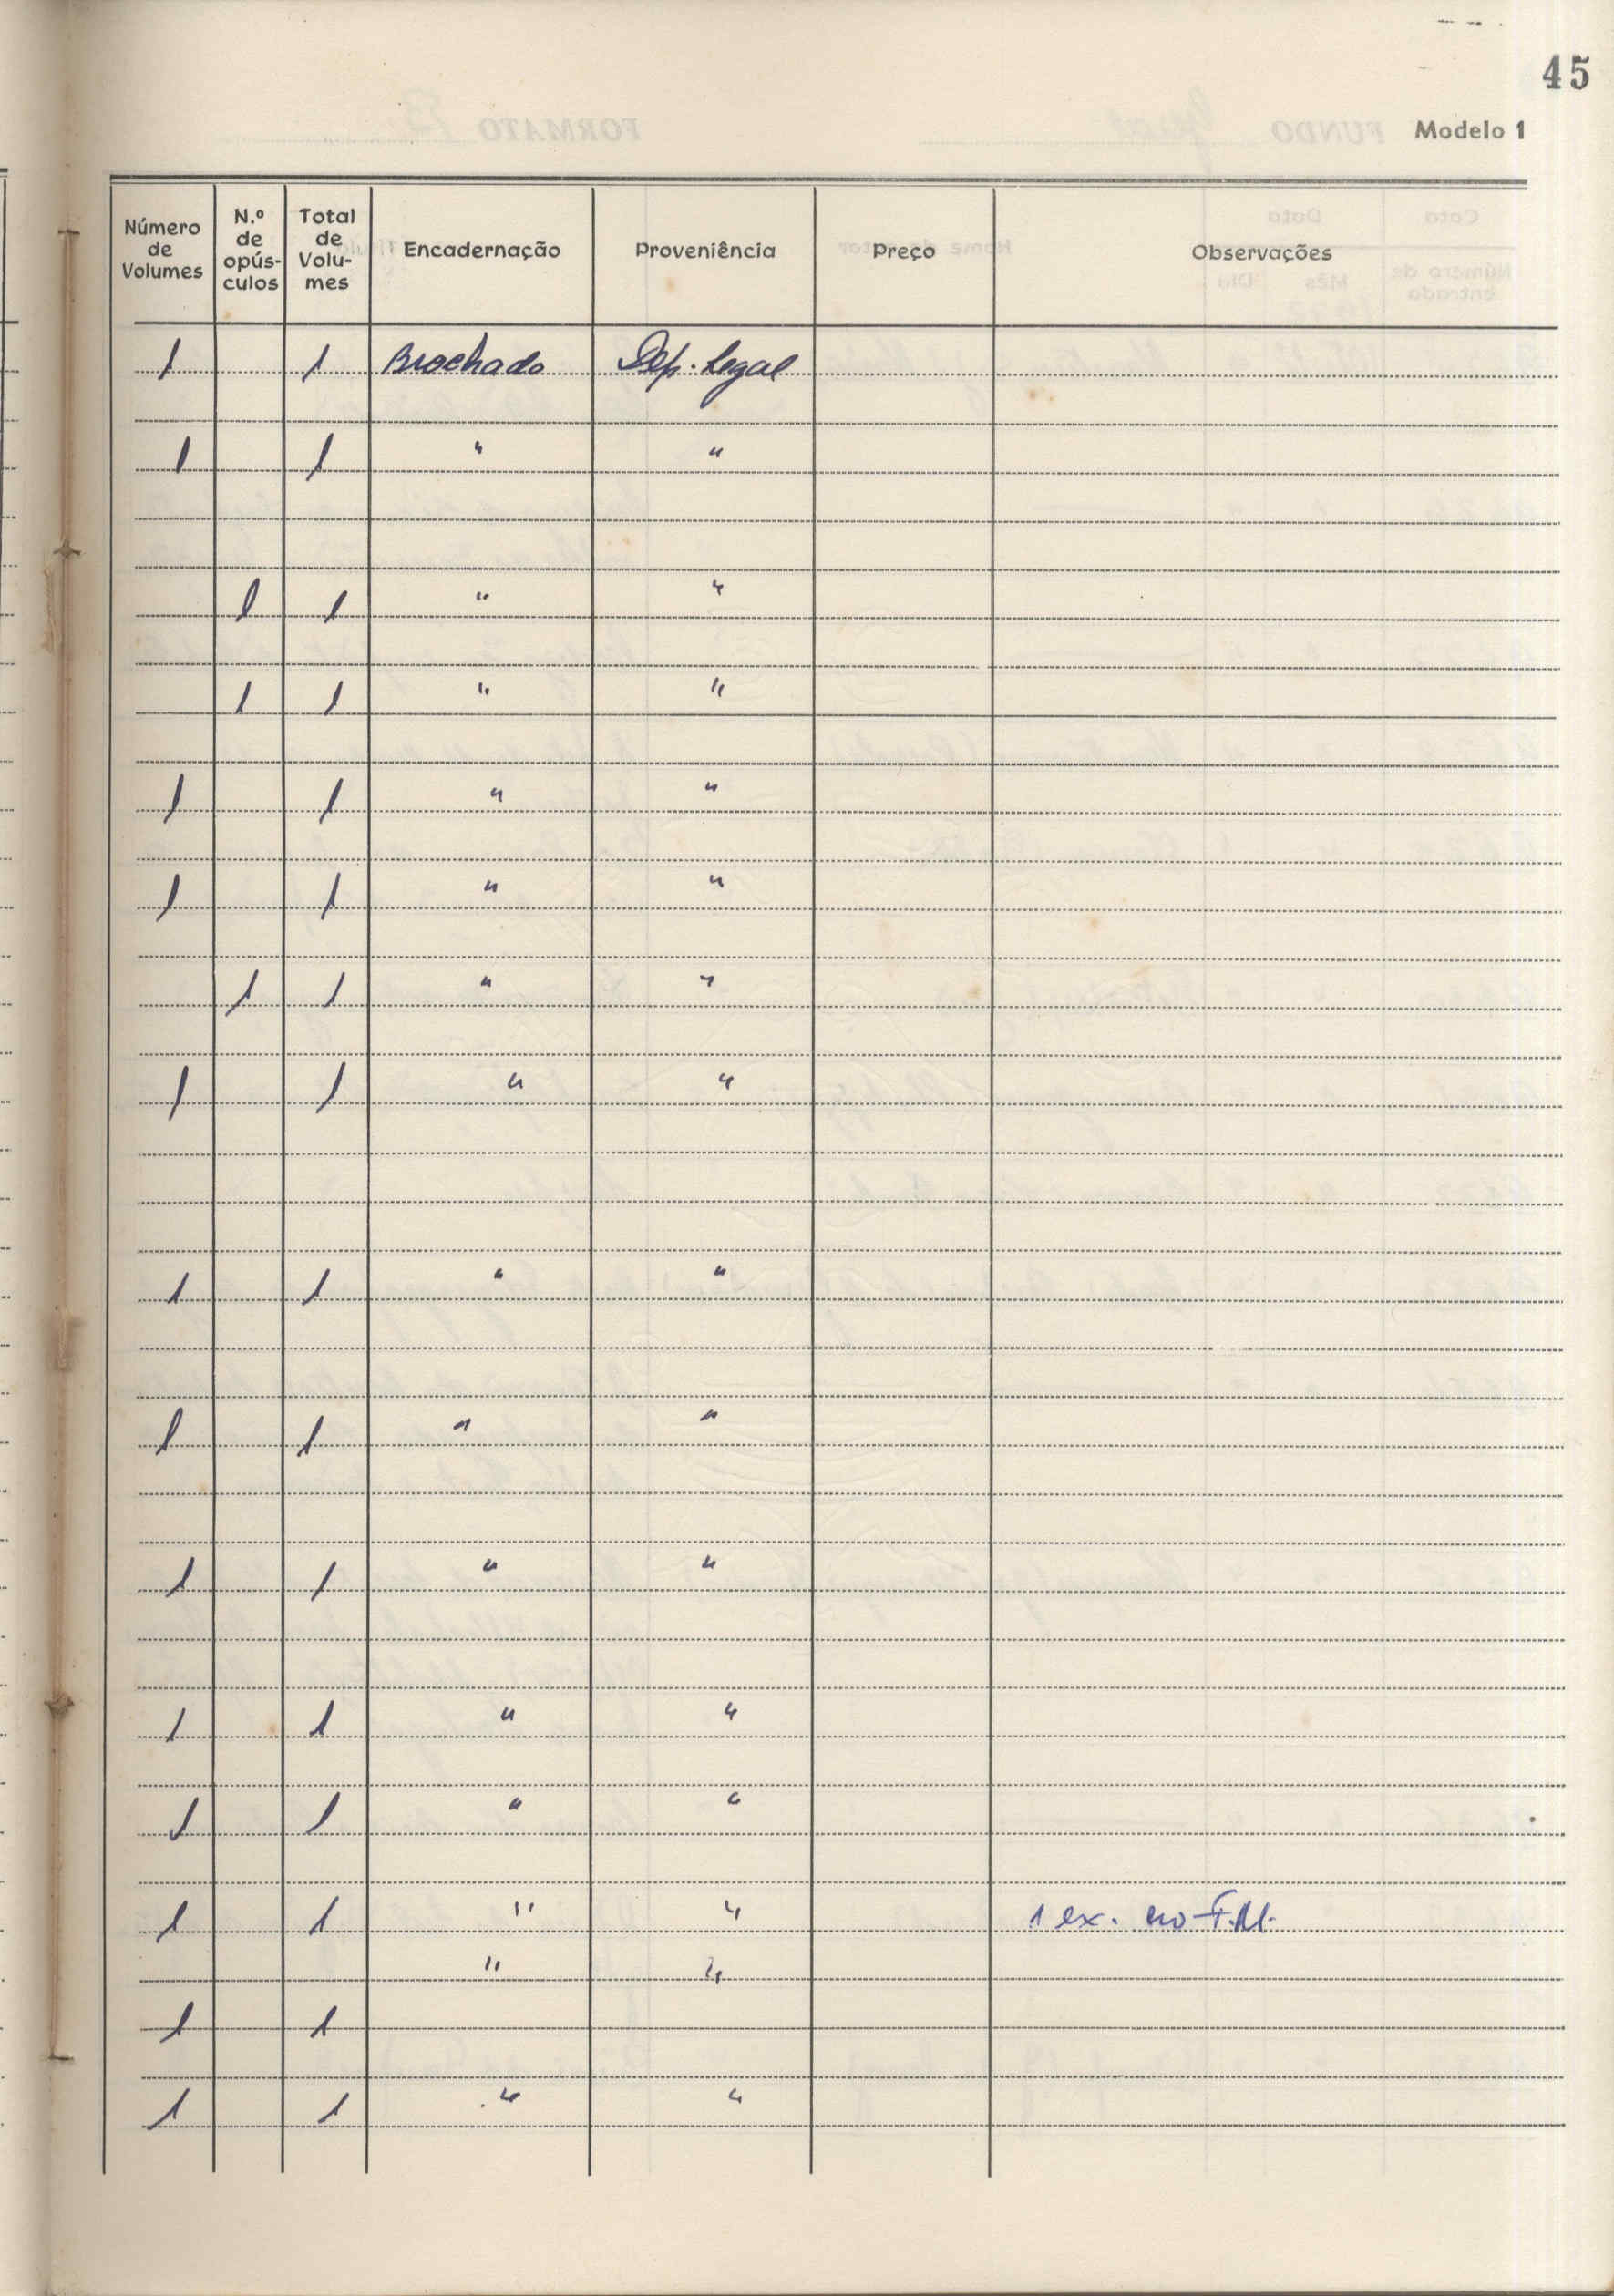 45
Modelo 1
Número de Volumes | N.º de opús-culos | Total de Volu-mes | Encadernação | Proveniência | Preço | Observações
1 | | 1 | Brochado | Dep. Legal
1 | | 1 | " | "
| 1 | 1 | " | "
| 1 | 1 | " | "
1 | | 1 | " | "
1 | | 1 | " | "
| 1 | 1 | " | "
1 | | 1 | " | "
1 | | 1 | " | "
1 | | 1 | " | "
1 | | 1 | " | "
1 | | 1 | " | "
1 | | 1 | " | "
1 | | 1 | " | " | | 1 ex. no F.M.
| | | " | "
1 | | 1
1 | | 1 | " | "